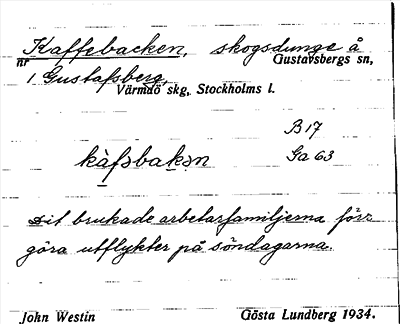 Kaffebacken, skogsdunge å
nr Gustavsbergs sn,
1 Gustafsberg,
Värmdö skg, Stockholms l.
B17
kàfsbakən Ga 63
Dit brukade arbetarfamiljerna förr
göra utflykter på söndagarna.
John Westin Gösta Lundberg 1934.